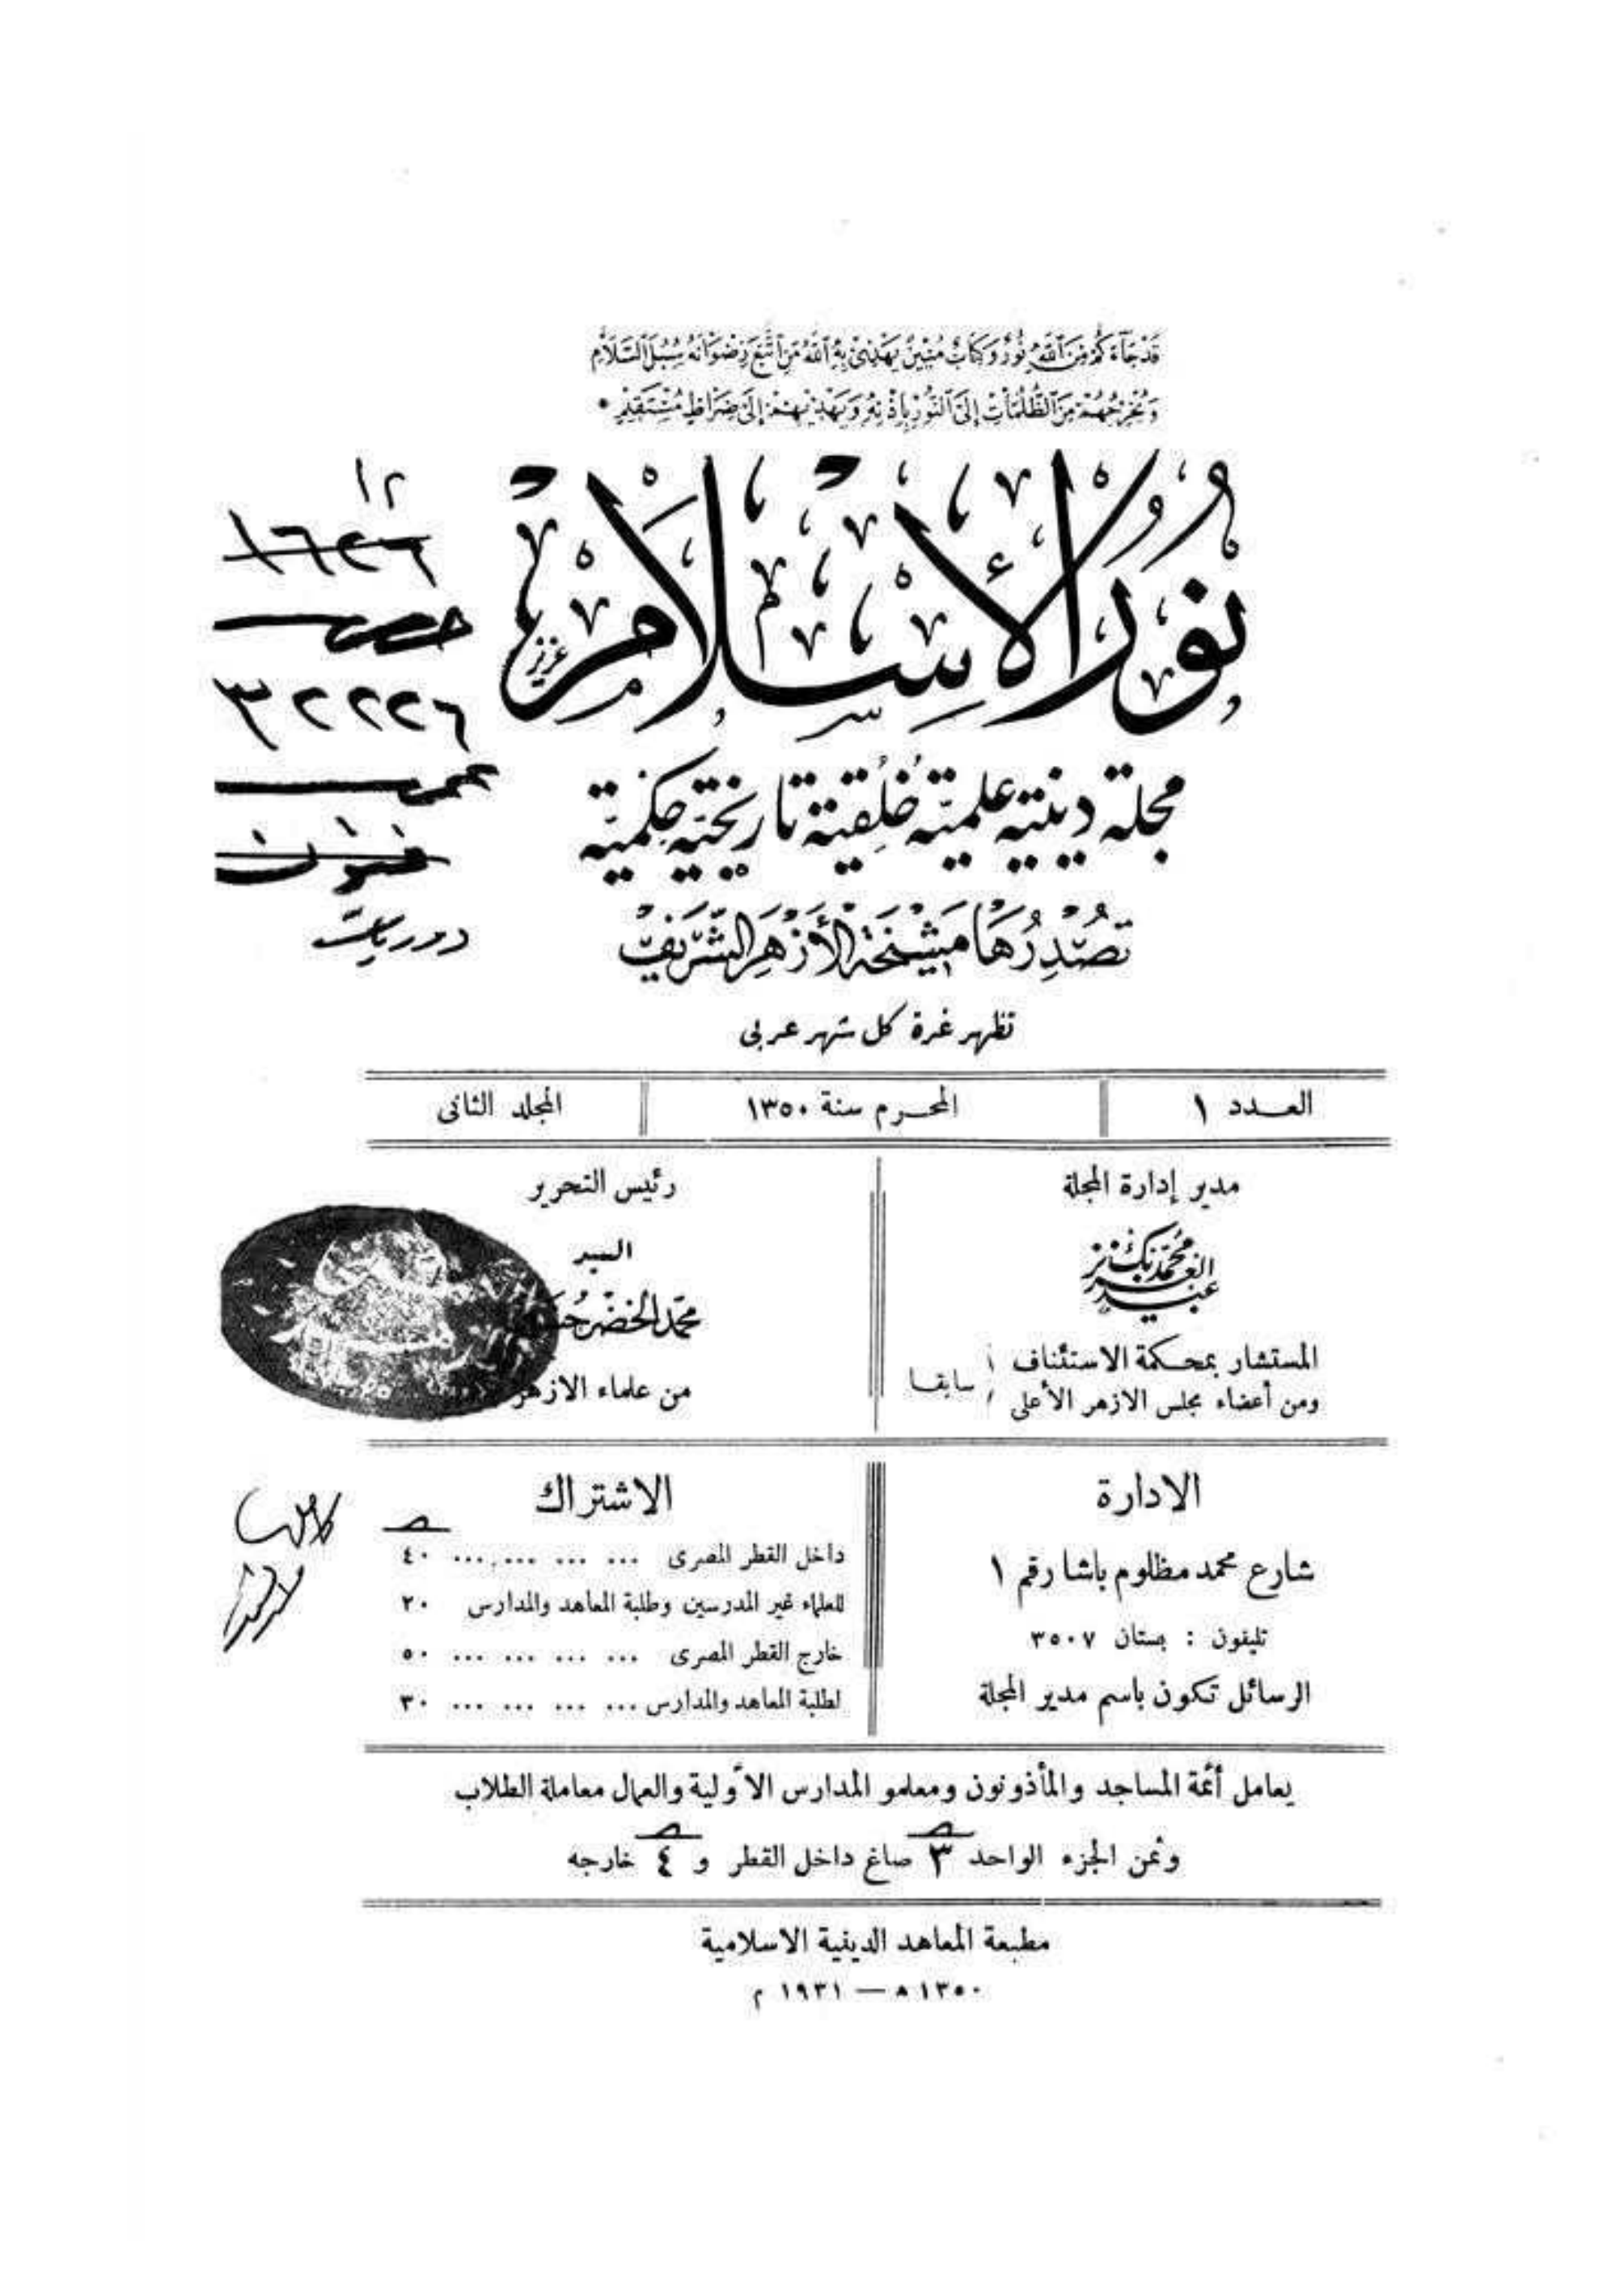 قَدْ جَاءَكُمْ مِنَ اللَّهِ نُورٌ وَكِتَابٌ مُبِينٌ يَهْدِي بِهِ اللَّهُ مَنِ اتَّبَعَ رِضْوَانَهُ سُبُلَ السَّلَامِ
وَيُخْرِجُهُمْ مِنَ الظُّلُمَاتِ إِلَى النُّورِ بِإِذْنِهِ وَيَهْدِيهِمْ إِلَى صِرَاطٍ مُسْتَقِيمٍ
نُورُ الْإِسْلَامِ
١٢
١٦٢٦
٣٢٢٢٦
مجلة دينية علمية خُلُقية تاريخية حِكمية
تُصْدِرُهَا مَشْيَخَةُ الْأَزْهَرِ الشَّرِيفِ
تظهر غرة كل شهر عربى
العدد ١
المحرم سنة ١٣٥٠
المجلد الثانى
مدير إدارة المجلة
عبد العزيز محمد بك
المستشار بمحكمة الاستئناف
ومن أعضاء مجلس الازهر الأعلى
سابقا
رئيس التحرير
السيد
محمد الخضر
من علماء الازهر
الادارة
شارع محمد مظلوم باشا رقم ١
تليفون : بستان ٣٥٠٧
الرسائل تكون باسم مدير المجلة
الاشتراك
داخل القطر المصرى ... ... ... ... ٤٠
للعلماء غير المدرسين وطلبة المعاهد والمدارس ٢٠
خارج القطر المصرى ... ... ... ... ٥٠
لطلبة المعاهد والمدارس ... ... ... ... ٣٠
يعامل أئمة المساجد والمأذونون ومعلمو المدارس الأولية والعمال معاملة الطلاب
وثمن الجزء الواحد ٣ صاغ داخل القطر و ٤ خارجه
مطبعة المعاهد الدينية الاسلامية
١٣٥٠ ه — ١٩٣١ م